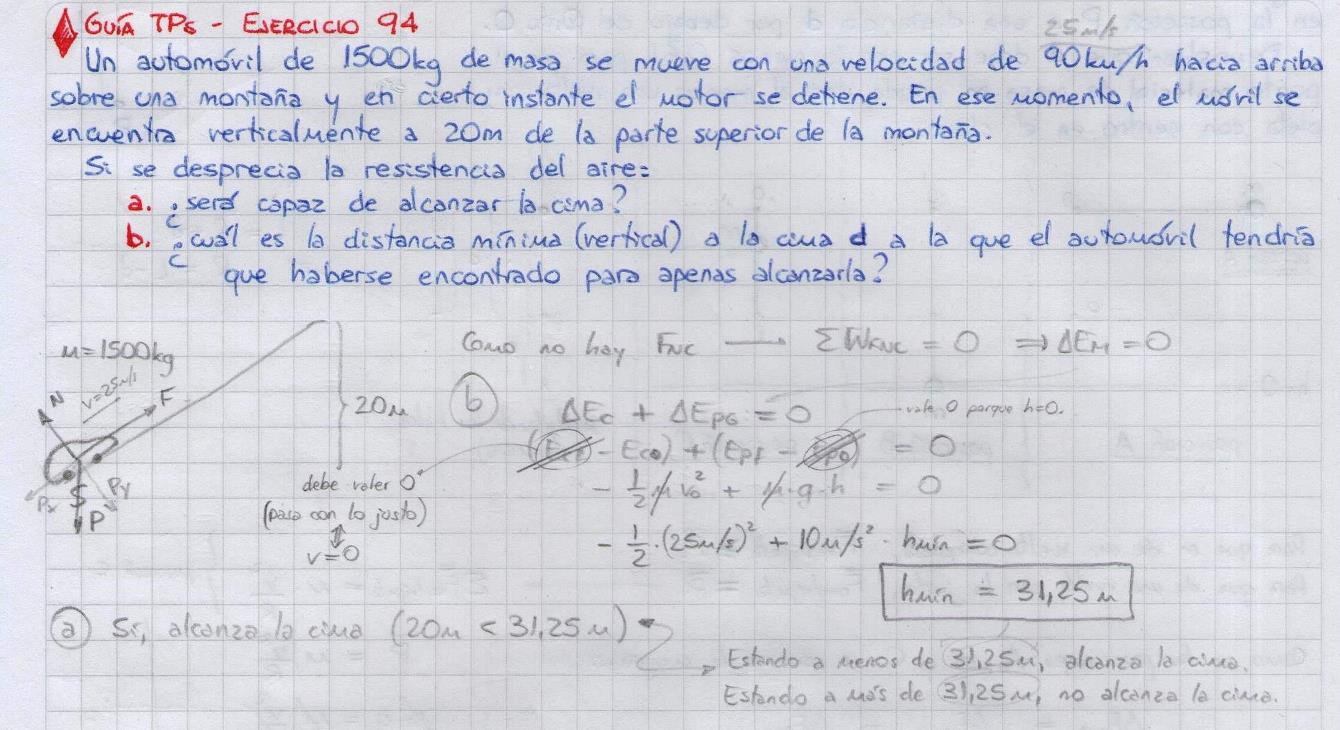 GUÍA TPs - EJERCICIO 94
25m/s
Un automóvil de 1500kg de masa se mueve con una velocidad de 90km/h hacia arriba
sobre una montaña y en cierto instante el motor se detiene. En ese momento, el móvil se
encuentra verticalmente a 20m de la parte superior de la montaña.
Si se desprecia la resistencia del aire:
a. ¿será capaz de alcanzar la cima?
b. ¿cuál es la distancia mínima (vertical) a la cima d a la que el automóvil tendría
que haberse encontrado para apenas alcanzarla?
m=1500kg
v=25m/s
N
F
Px
Py
P
20m
Como no hay FNC → ΣWFNC = 0 ⇒ ΔEM = 0
b
ΔEc + ΔEPG = 0
vale 0 porque h=0.
(Ecf - Ec0) + (Epf - Ep0) = 0
debe valer 0
(pasa con lo justo)
v=0
- 1/2 m v0² + m·g·h = 0
- 1/2·(25m/s)² + 10m/s² · hmín = 0
hmín = 31,25m
a Si, alcanza la cima (20m < 31,25m)
Estando a menos de 31,25m, alcanza la cima.
Estando a más de 31,25m, no alcanza la cima.